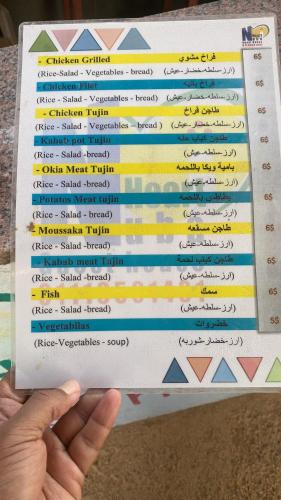 - Chicken Grilled فراخ مشوي 6$
(Rice-Salad - Vegetables - bread) (ارز-سلطه-خضار-عيش)
- Chicken Filet فراخ بانيه 6$
(Rice - Salad - Vegetables - bread) (ارز-سلطه-خضار-عيش)
- Chicken Tujin طاجن فراخ 6$
(Rice - Salad - Vegetables – bread ) (ارز-سلطه-خضار-عيش)
- Kabab pot Tujin طاجن كباب حله 6$
(Rice - Salad -bread) (ارز-سلطه-عيش)
- Okia Meat Tujin بامية ويكا باللحمه 6$
(Rice - Salad -bread) (ارز-سلطه-عيش)
- Potatos Meat tujin بطاطس باللحمه 6$
(Rice - Salad -bread) (ارز-سلطه-عيش)
- Moussaka Tujin طاجن مسقعه 6$
(Rice - Salad -bread) (ارز-سلطه-عيش)
- Kabab meat Tujin طاجن كباب لحمة 6$
(Rice - Salad -bread) (ارز-سلطه-عيش)
- Fish سمك 6$
(Rice - Salad -bread) (ارز-سلطه-عيش)
- Vegetablias خضروات 5$
(Rice-Vegetables - soup) (ارز-خضار-شوربه)